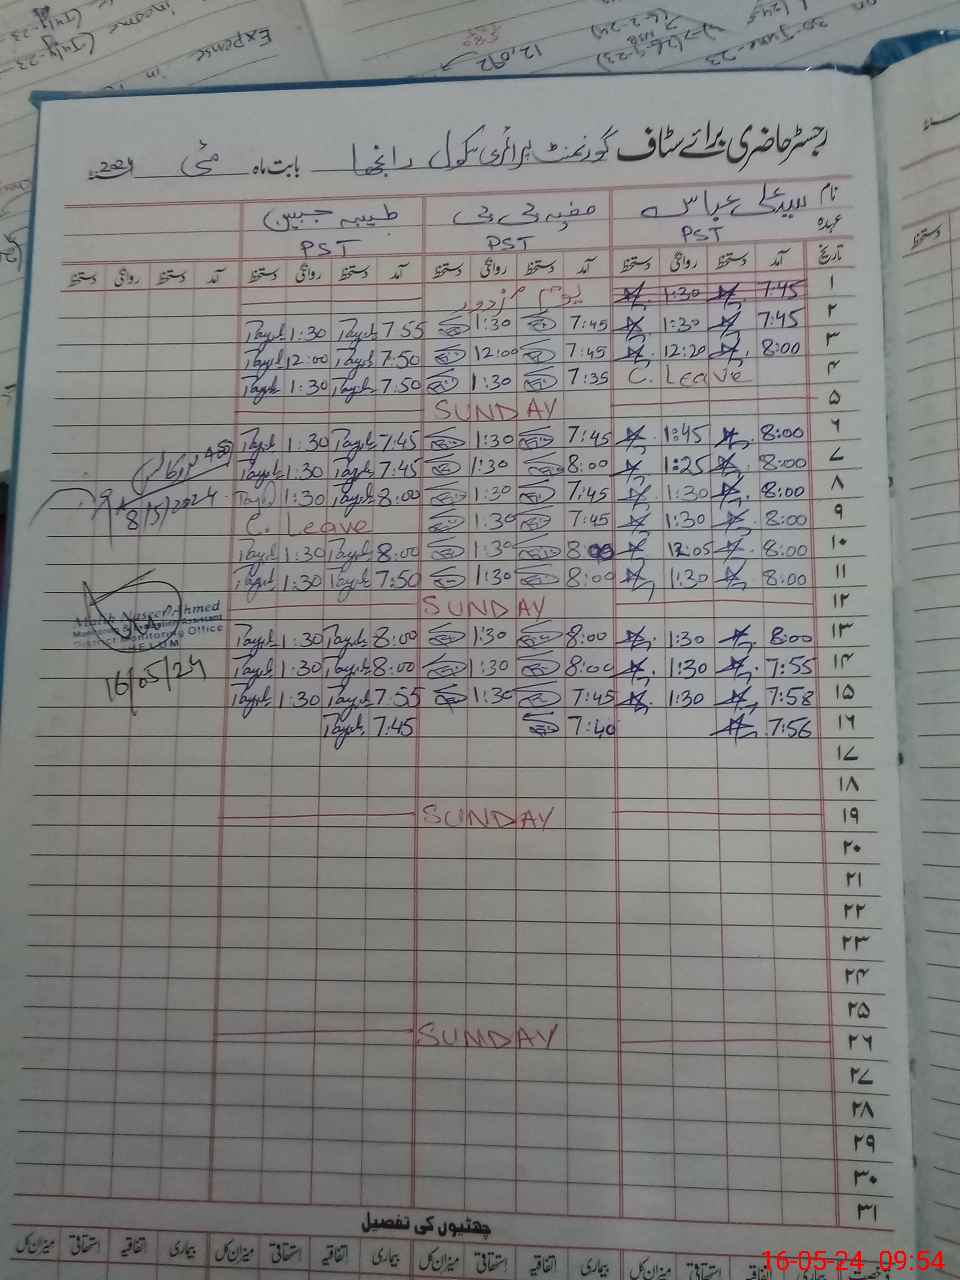 رجسٹر حاضری برائے سٹاف گورنمنٹ پرائمری سکول رانجھا بابت ماہ مئی 2024
نام سید علی عباس صفیہ بی بی طیبہ جبین
عہدہ PST PST PST
تاریخ آمد دستخط روانگی دستخط آمد دستخط روانگی دستخط آمد دستخط روانگی دستخط آمد دستخط روانگی دستخط
۱ 7:45 1:30 یوم مزدور
۲ 7:45 1:30 7:45 1:30 7:55 Tayab 1:30 Tayab
۳ 8:00 12:20 7:45 12:00 7:50 Tayab 12:00 Tayab
۴ C. Leave 7:35 1:30 7:50 Tayab 1:30 Tayab
۵ SUNDAY
۶ 8:00 1:45 7:45 1:30 7:45 Tayab 1:30 Tayab
۷ 8:00 1:25 8:00 1:30 7:45 Tayab 1:30 Tayab
۸ 8:00 1:30 7:45 1:30 8:00 Tayab 1:30 Tayab
8/5/2024
۹ 8:00 1:30 7:45 1:30 C. Leave
۱۰ 8:00 12:05 8:00 1:30 8:00 Tayab 1:30 Tayab
۱۱ 8:00 1:30 8:00 1:30 7:50 Tayab 1:30 Tayab
۱۲ SUNDAY
Malik Naseer Ahmed
Monitoring & Evaluation Assistant
District Monitoring Office
JHELUM
16/05/24
۱۳ 8:00 1:30 8:00 1:30 8:00 Tayab 1:30 Tayab
۱۴ 7:55 1:30 8:00 1:30 8:00 Tayab 1:30 Tayab
۱۵ 7:58 1:30 7:45 1:30 7:55 Tayab 1:30 Tayab
۱۶ 7:56 7:40 7:45 Tayab
۱۷
۱۸
۱۹ SUNDAY
۲۰
۲۱
۲۲
۲۳
۲۴
۲۵
۲۶ SUNDAY
۲۷
۲۸
۲۹
۳۰
۳۱
چھٹیوں کی تفصیل
اتفاقیہ استحقاقی میزان کل بیماری اتفاقیہ استحقاقی میزان کل بیماری اتفاقیہ استحقاقی میزان کل بیماری اتفاقیہ استحقاقی میزان کل
16-05-24 09:54